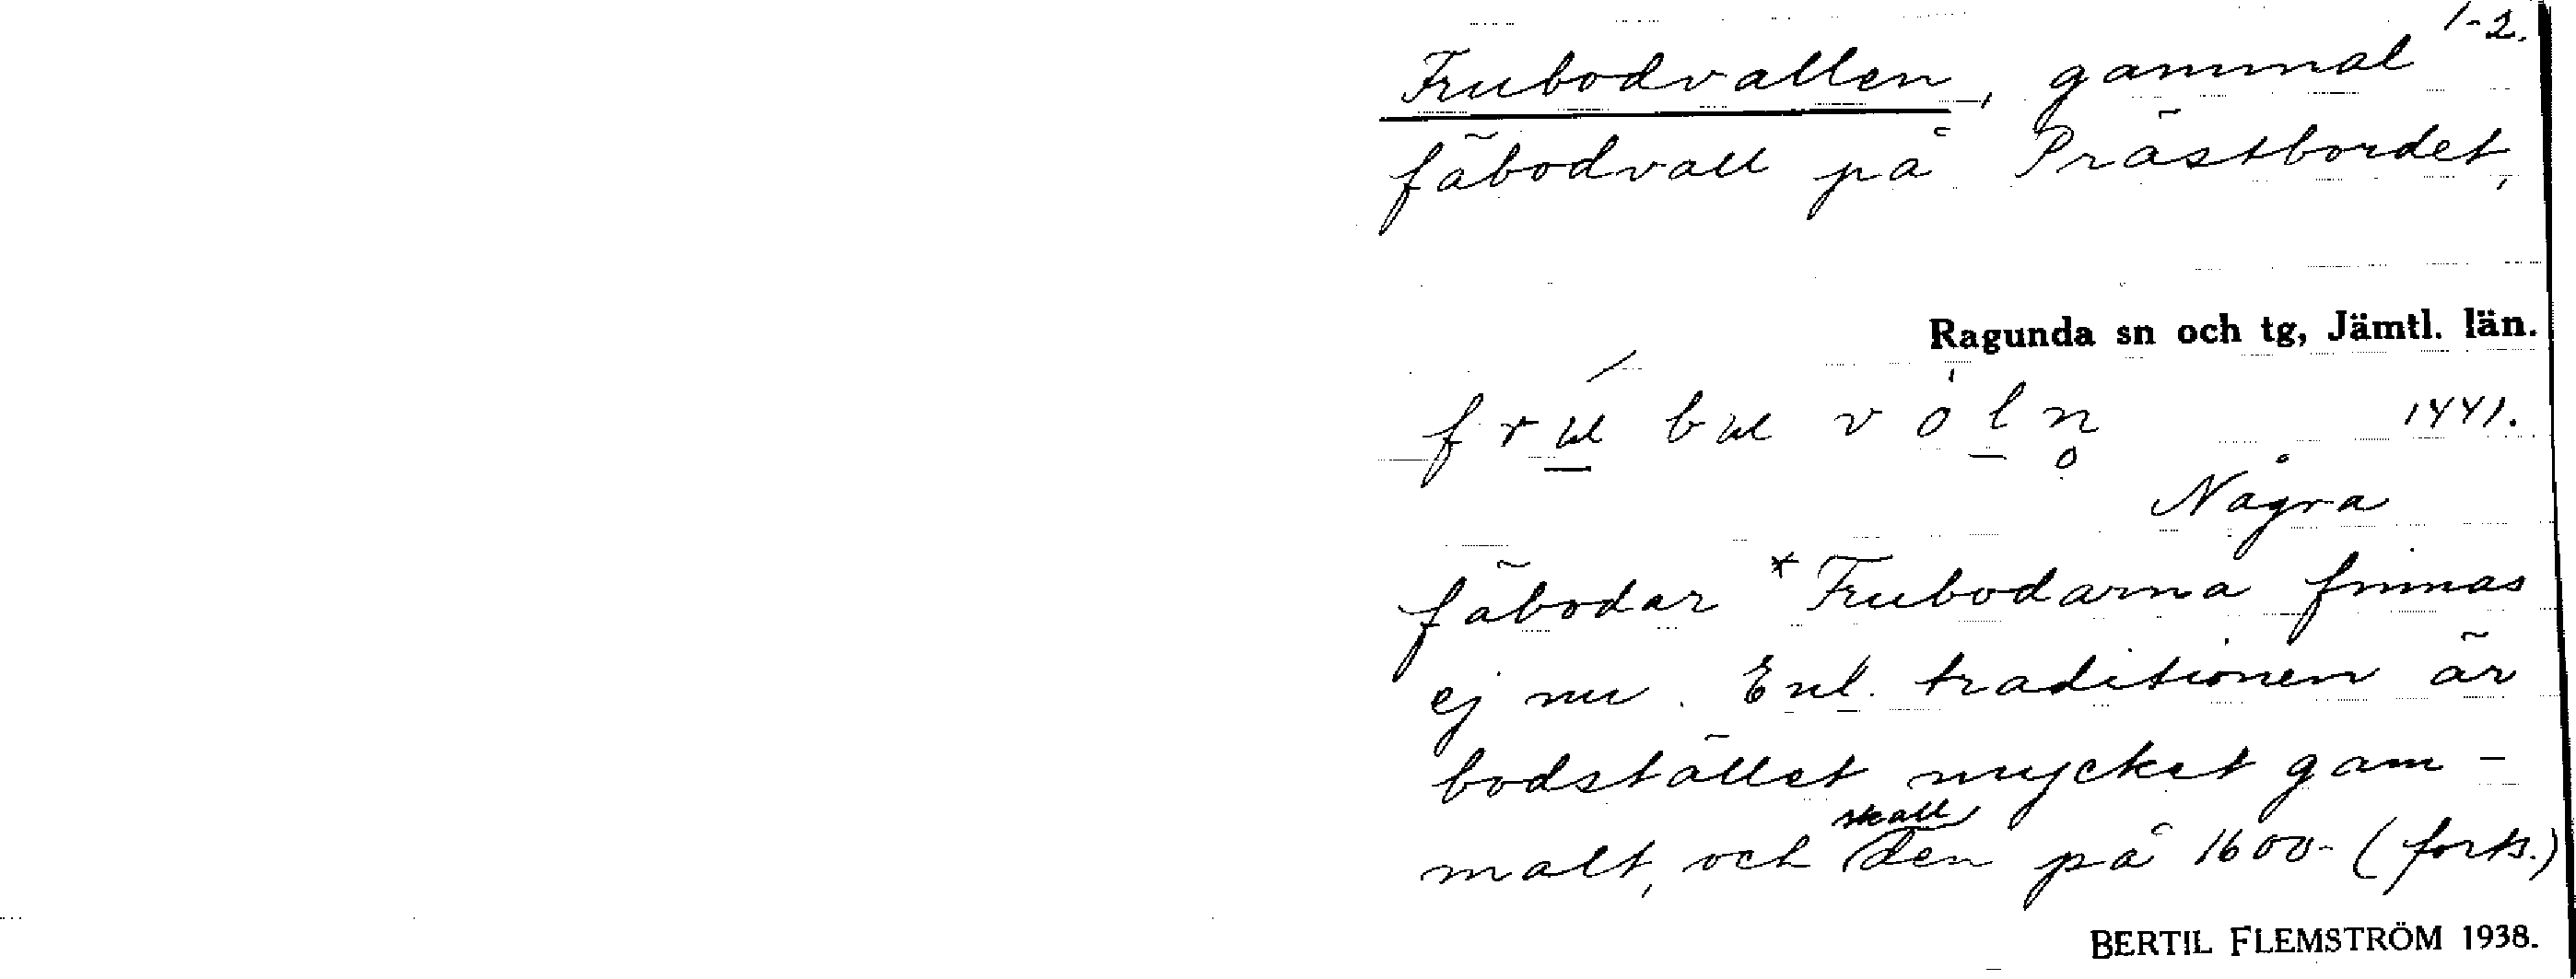 1-2.
Frubodvallen, gammal
fäbodvall på Prästbordet,
Ragunda sn och tg, Jämtl. län.
1441.
Några
fäbodar *Frubodarna finnas
ej nu. Enl. traditionen är
bodstället mycket gam-
malt, och skall den på 1600- (forts.)
BERTIL FLEMSTRÖM 1938.